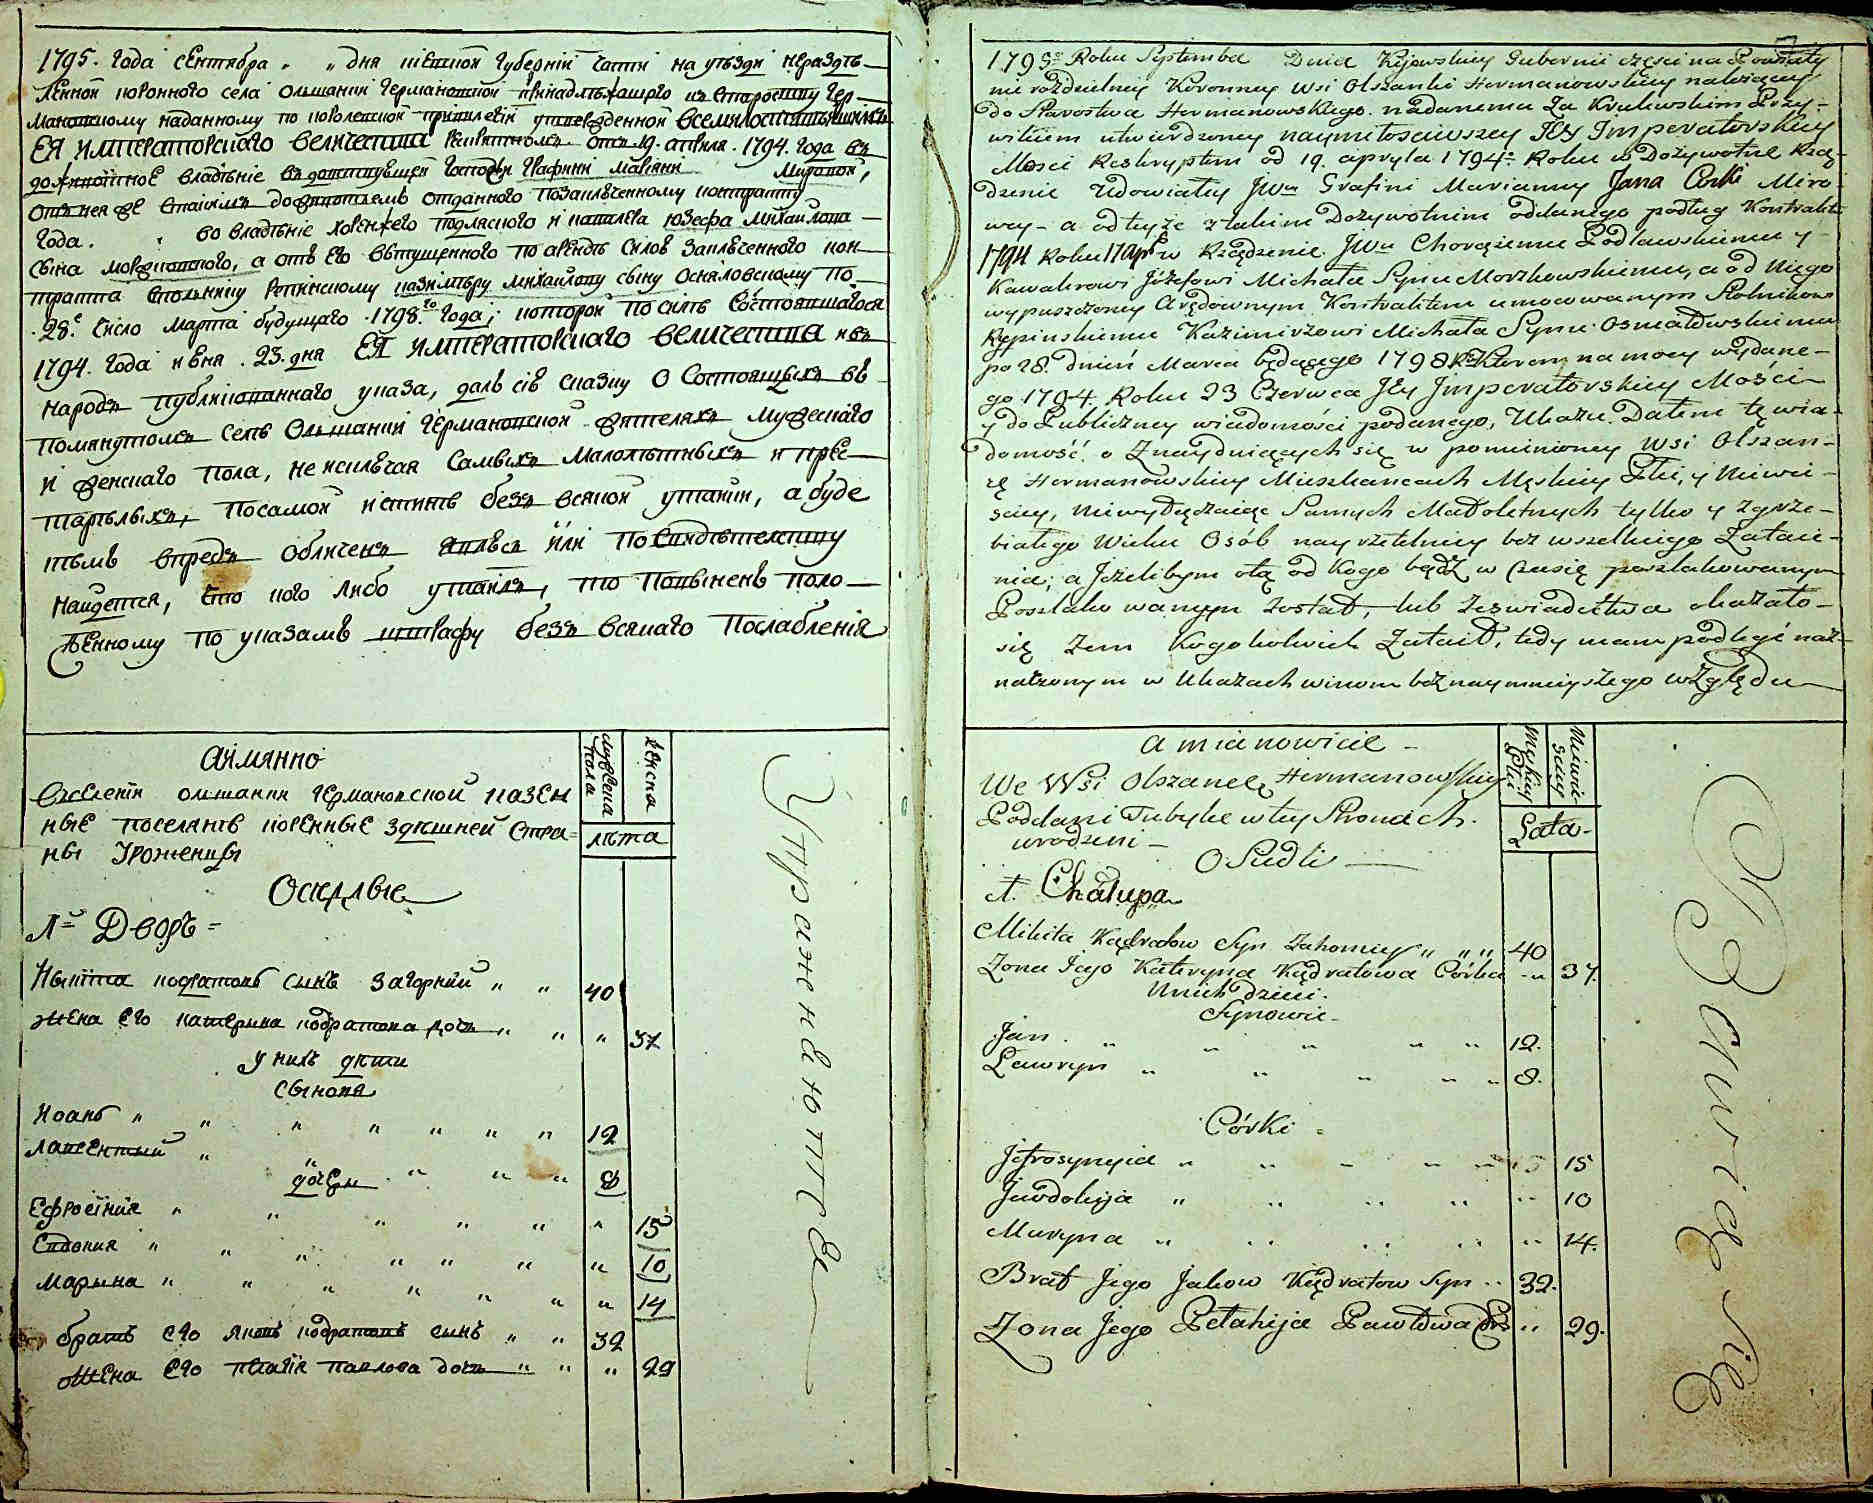 1795. года сентября „ „ дня Киевской губернии части на уезди нераздѣ-
ленной коронного села Ольшанки Германовской принадлежащого из Староству Гер-
мановскому наданному по королевской привилегии утвержденной всемилостивейшимъ
ЕЯ ИМПЕРАТОРСКАГО ВЕЛИЧЕСТВА рескриптомъ отъ 19. апреля. 1794. года въ
доживотное владѣніе вдовствующей Графини Марiяни Мировой,
отъ нея же таким доживотием отданного по заключенному контракту
года. во владѣніе хоренжего подляского и кавалера Юзефа Михайлова
сына Моржковского, а отъ его выпущенного по арендѣ силою заключенного кон-
тракта Столнику Репинскому Казимѣру Михайлову сыну Осмаловскому по
28.е число марта будущаго 1798.го года; которой по силѣ состоявшагося
1794. года июня 23. дня ЕЯ ИМПЕРАТОРСКАГО ВЕЛИЧЕСТВА и въ
народъ публикованнаго указа, далъ сiю сказку о состоящихъ въ
помянутомъ селѣ Ольшанки Германовской жителяхъ мужескаго
и женскаго пола, не исключая самыхъ малолѣтныхъ и пре-
старѣлыхъ, по самой истинѣ безъ всякой утайки, а буде
кѣмъ впредь обличенъ явлюсь или по свидѣтелству
найдется, что кого либо утаилъ, то повиненъ поло-
женному по указамъ штрафу безъ всякаго послабленія
А имянно
мужеска пола
женска
В селении Олшанки Германовской казен
ные поселянѣ коренные здѣшней стра=
ны уроженцы
лѣта
Оседлые
1= Дворъ =
Никита Кодратовъ сынъ Загорний „ „ 40
жена его Катерина Кодратова дочь „ „ „ 37
у нихъ дети
сыновя
Иоанъ „ „ „ „ „ „ „ 12
Лаврентый „ „ „ „ „ 8
дочеры
Ефросиния „ „ „ „ „ „ 15
Евдокия „ „ „ „ „ „ „ 10
Марына „ „ „ „ „ „ „ 14
братъ его Яковъ Кодратовъ сынъ „ „ 32
жена его Пелагія Павлова дочь „ „ „ 29
Упражняются
1795o Roku Septembra Dnia Kijowskiey Gubernii częsci na Powiaty
nie rozdzielney Koronney wsi Olszanki Hermanowskiey należącey
do Starostwa Hermanowskiego nadanemu za Krulewskim Przy-
wileiem utwierdzoney naymiłosciwszey JEY Imperatorskiey
Mosci Reskryptem od 19. apryla 1794= Roku w Dożywotne Rzą-
dzenie Udowiałey JWu Grafini Marianny Jana Corki Miro-
wey - a od teyże z takim Dożywotnim oddanego podług Kontraktu
1794 Roku 17 apr w Rządzenie JWu Chorążemu Podlawskiemu y
Kawalerowi Józefowi Michała Synu Morzkowskiemu, a od Niego
wypuszczoney Arędownym Kontraktem umocowanym Stolnikowi
Rzepinskiemu Kazimirzowi Michała Synu Osmałowskiemu
po 28. dnień Marca będącego 1798 Ru Ktoren na mocy wydane-
go 1794. Roku 23 Czerwca JEy Imperatorskiey Mości
y do Publiczney wiadomości podanego, Ukazu. Datem tę wia-
domość o Znaydniących się w pomienioney wsi Olszan-
cę Hermanowskiey Mieszkancach Męskiey Płci, y Niewie-
sciey, niewyłączaiąc Samych Małoletnych tylko y zgrze-
białego Wieku Osób nayrzetelniey bez wszelkiego Zataie-
nia; a Jeżelibym otę od Kogo bądź w czasię poszlakowanym
Poszlakowanym został, lub zeswiadectwa okazało-
się żem Kogokolwiek Zataił, tedy mam podlegć naz-
naczonym w Ukazach winom bez naymnieyszego względu
a mianowicie -
Męskiey Płci
Niewie-
sciey
We Wsi Olszancę Hermanowskiey
Poddani Tubylce w tey Stronach
urodzeni -
Lata -
Osiedli
1. Chałupa
Mikita Kądratow Syn Zahorniey „ „ „ 40
Zona Jego Kateryna Kądratowa Córka - „ 37.
Unich dzieci.
Synowie -
Jan „ „ „ „ „ 12.
Lawryn „ „ „ „ „ 8.
Córki =
Jefrosynyia „ „ „ „ „ 15
Jewdokija „ „ „ „ „ 10
Maryna „ „ „ „ „ 14.
Brat Jego Jakow Kądratow Syn „ 32.
Zona Jego Pełahija Pawłowa Cor „ 29.
Bawią się